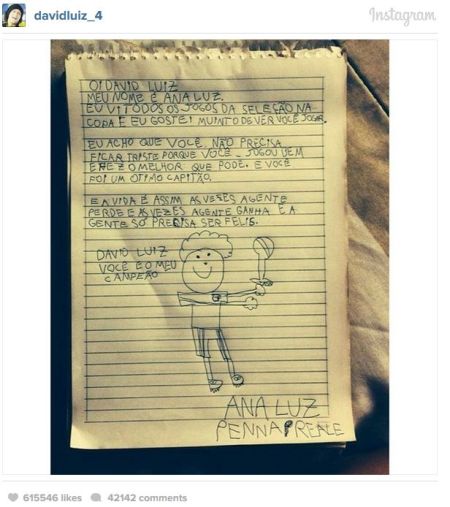 davidluiz_4
Instagram
OI DAVID LUIZ
MEU NOME É ANA LUZ.
EU VI TODOS OS JOGOS DA SELEÇÃO NA
COPA E EU GOSTEI MUINTO DE VER VOCÊ JOGAR.
EU ACHO QUE VOCÊ NÃO PRECISA
FICAR TRISTE PORQUE VOCÊ JOGOU BEM
E FEZ O MELHOR QUE PODE. E VOCÊ
FOI UM OTIMO CAPITÃO.
E A VIDA É ASSIM AS VEZES AGENTE
PERDE E AS VEZES AGENTE GANHA E A
GENTE SÓ PRECISA SER FELIS.
DAVID LUIZ
VOCÊ E O MEU
CAMPEÃO
ANA LUZ
PENNA REALE
615546 likes 42142 comments